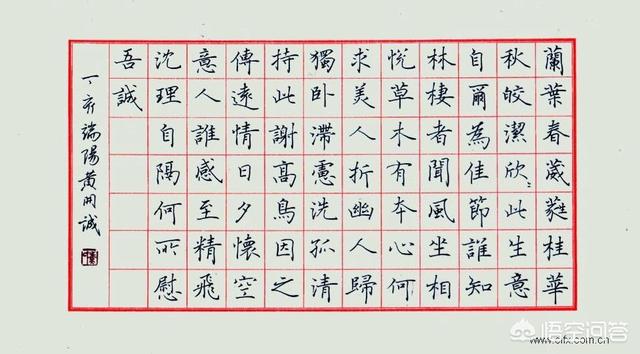 蘭葉春葳蕤桂華
秋皎潔欣〻此生意
自爾為佳節誰知
林棲者聞風坐相
悅草木有本心何
求美人折幽人歸
獨卧滯慮洗孤清
持此謝高鳥因之
傳遠情日夕懷空
意人誰感至精飛
沈理自隔何所慰
吾誠
丁亥端陽黄開誠
悟空问答
www.cifx.com.cn